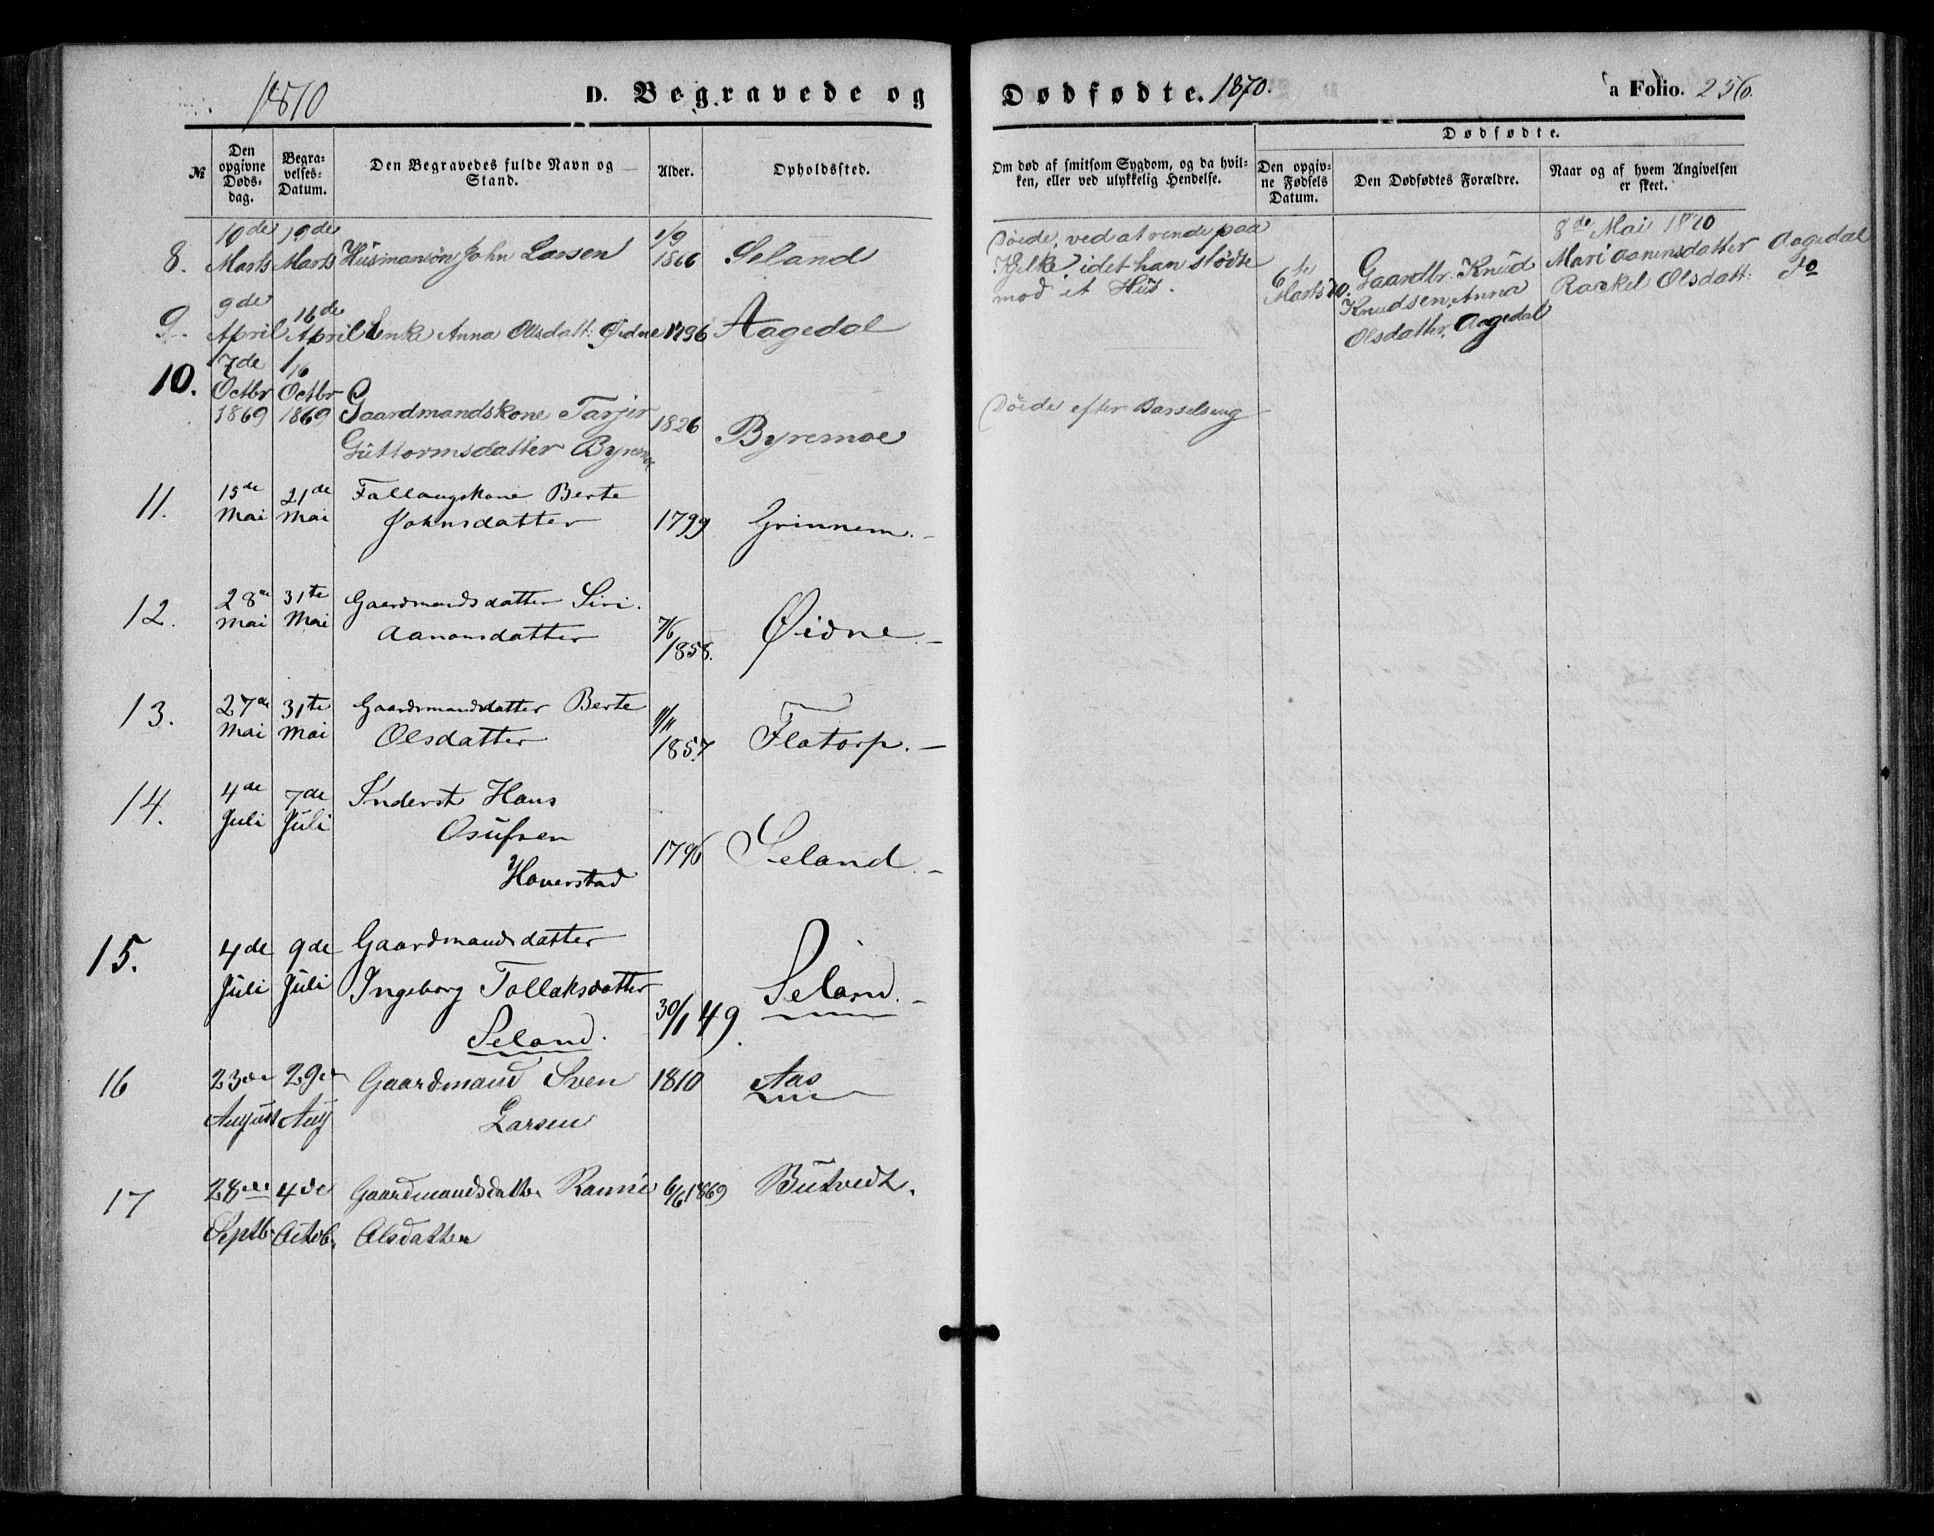 1870
D. Begravede og
№
Den opgivne Døds-dag.
Begra-velses-Datum.
Den Begravedes fulde Navn og Stand.
Alder.
Opholdssted.
8.
10de Marts
19de Marts
Husmansøn John Larsen
1/9 1866
Seland
9.
9de April
16de April
Enke Anna Olsdatt: Øidne
1796
Aagedal
10.
7de Octbr 1869
16 Octbr 1869
Gaardmandskone Tarjer
Guttormsdatter Byremoe
1826
Byremoe
11.
15de Mai
21de Mai
Follaugskone Berte
Johnsdatter
1799
Grinnem.
12.
28de Mai
31te Mai
Gaardmandsdatter Siri.
Aanonsdatter
7/6 1858.
Øidne.
13.
27de Mai
31te Mai
Gaardmandsdatter Berte
Olsdatter
11/11 1857
Flatorp.
14.
4de Juli
7de Juli
Inderst Hans
Osufsen
Haverstad
1796
Seland.
15.
4de Juli
9de Juli
Gaardmandsdatter
Ingeborg Tollaksdatter
Seland.
30/1 49.
Seland.
16
23de August
29de Aug
Gaardmand Sven
Larsen
1810
Aas
17
28de Septb.
4de Octob.
Gaardmandsdatter Ramie
Olsdatter
6/6 1869
Butvedt.
Dødfødte. 1870.
a Folio. 256.
Om død af smitsom Sygdom, og da hvil-
ken, eller ved ulykkelig Hendelse.
Dødfødte.
Den opgiv-
ne Fødsels
Datum.
Den Dødfødtes Forældre.
Naar og af hvem Angivelsen
er skeet.
Døede, ved at rende paa
Kjelke, idet han stødte
mod et Hus.
6te Marts 70.
Gaardbr. Knud
Knudsen, Anna
Olsdatter, Aagedal
8de Mai 1870
Mari Aanensdatter Aagedal
Rackel Olsdatt. do
Døede efter Barselseng